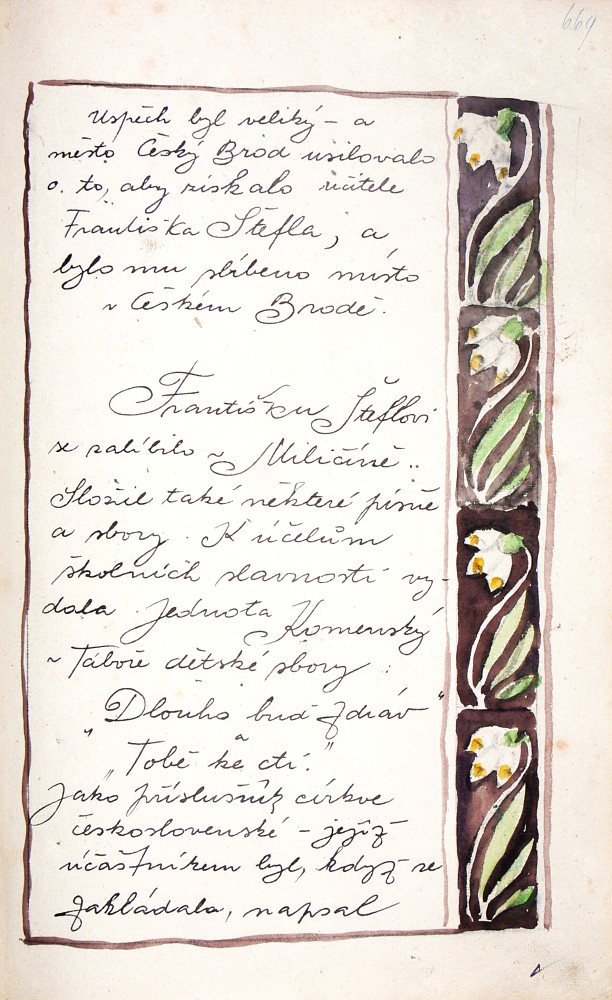 669
Uspěch byl veliký - a
město Český Brod usilovalo
o to, aby získalo učitele
Františka Štefla, a
bylo mu slíbeno místo
v Českém Brodě.
Františku Šteflovi
se zalíbilo v Miličíně..
Složil také některé písně
a sbory. K účelům
školních slavností vy-
dala Jednota Komenský
v Táboře dětské sbory :
"Dlouho buď zdráv"
a
"Tobě ke cti."
Jako příslušník církve
československé - jejíž
účastníkem byl, když se
zakládala, napsal